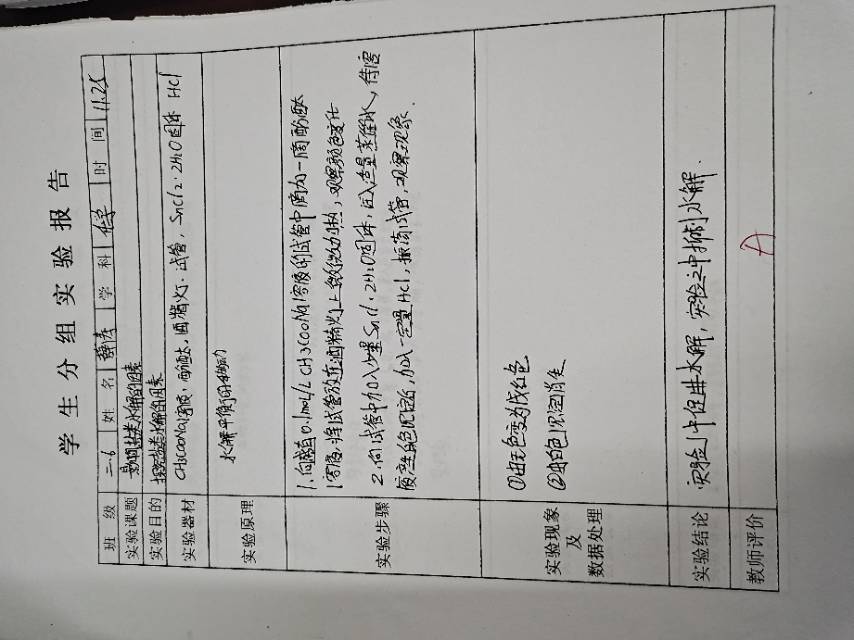 学生分组实验报告
班 级 二.6 姓 名 学 科 化学 时 间 11.25
实验课题 影响盐类水解的因素
实验目的 探究盐类水解的因素
实验器材 CH3COONa溶液,酚酞,酒精灯.试管,SnCl2·2H2O固体 HCl
实验原理 水解平衡的移动
实验步骤
1.向盛有0.1mol/L CH3COONa溶液的试管中滴加一滴酚酞
溶液,将试管放在酒精灯上微热,观察颜色变化
2.向试管中加入少量SnCl2·2H2O固体,加入适量蒸馏水,待溶
液产生白色沉淀后,加入一定量HCl,振荡试管,观察现象.
实验现象
及
数据处理
①由无色变为浅红色
②白色沉淀消失
实验结论 实验1中促进水解,实验2中抑制水解.
教师评价 A